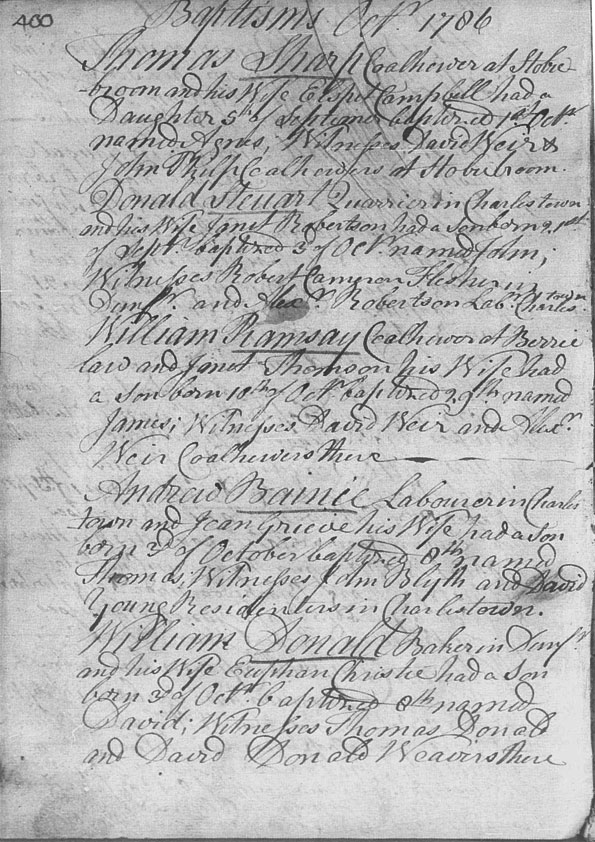 460
Baptisms Octr. 1786
Thomas Sharp Coalhewer at Hobie
-broom and his Wife Elspit Campbell had a
Daughter 5th of Septemr baptized 1st Octr
named Agnes, Witnesses David Weir &
John Coalhewers at Hobiebroom.
Donald Steuart Quarrier in Charlestown
and his Wife Janet Robertson had a son born 21st
of Septr. baptized 3 of Octr. named John;
Witnesses Robert Cameron Flesher in
Dunfr. and Alexr. Robertson Labr. Charles-town
William Ramsay Coalhewer at Berrie
law and Janet Thomson his Wife had
a son born 18th of Octr. baptized 29th named
James; Witnesses David Weir and Alexr.
Weir Coalhewers there
Andrew Bainie Labourer in Charles
town and Jean Grieve his Wife had a son
born 3d of October baptized 8th named
Thomas; Witnesses John Blyth and David
Young Residenters in Charlestown.
William Donald Baker in Dunfr
and his Wife Euphan Christie had a son
born 3d of Octr. baptized 8th named
David; Witnesses Thomas Donald
and David Donald Weavers there